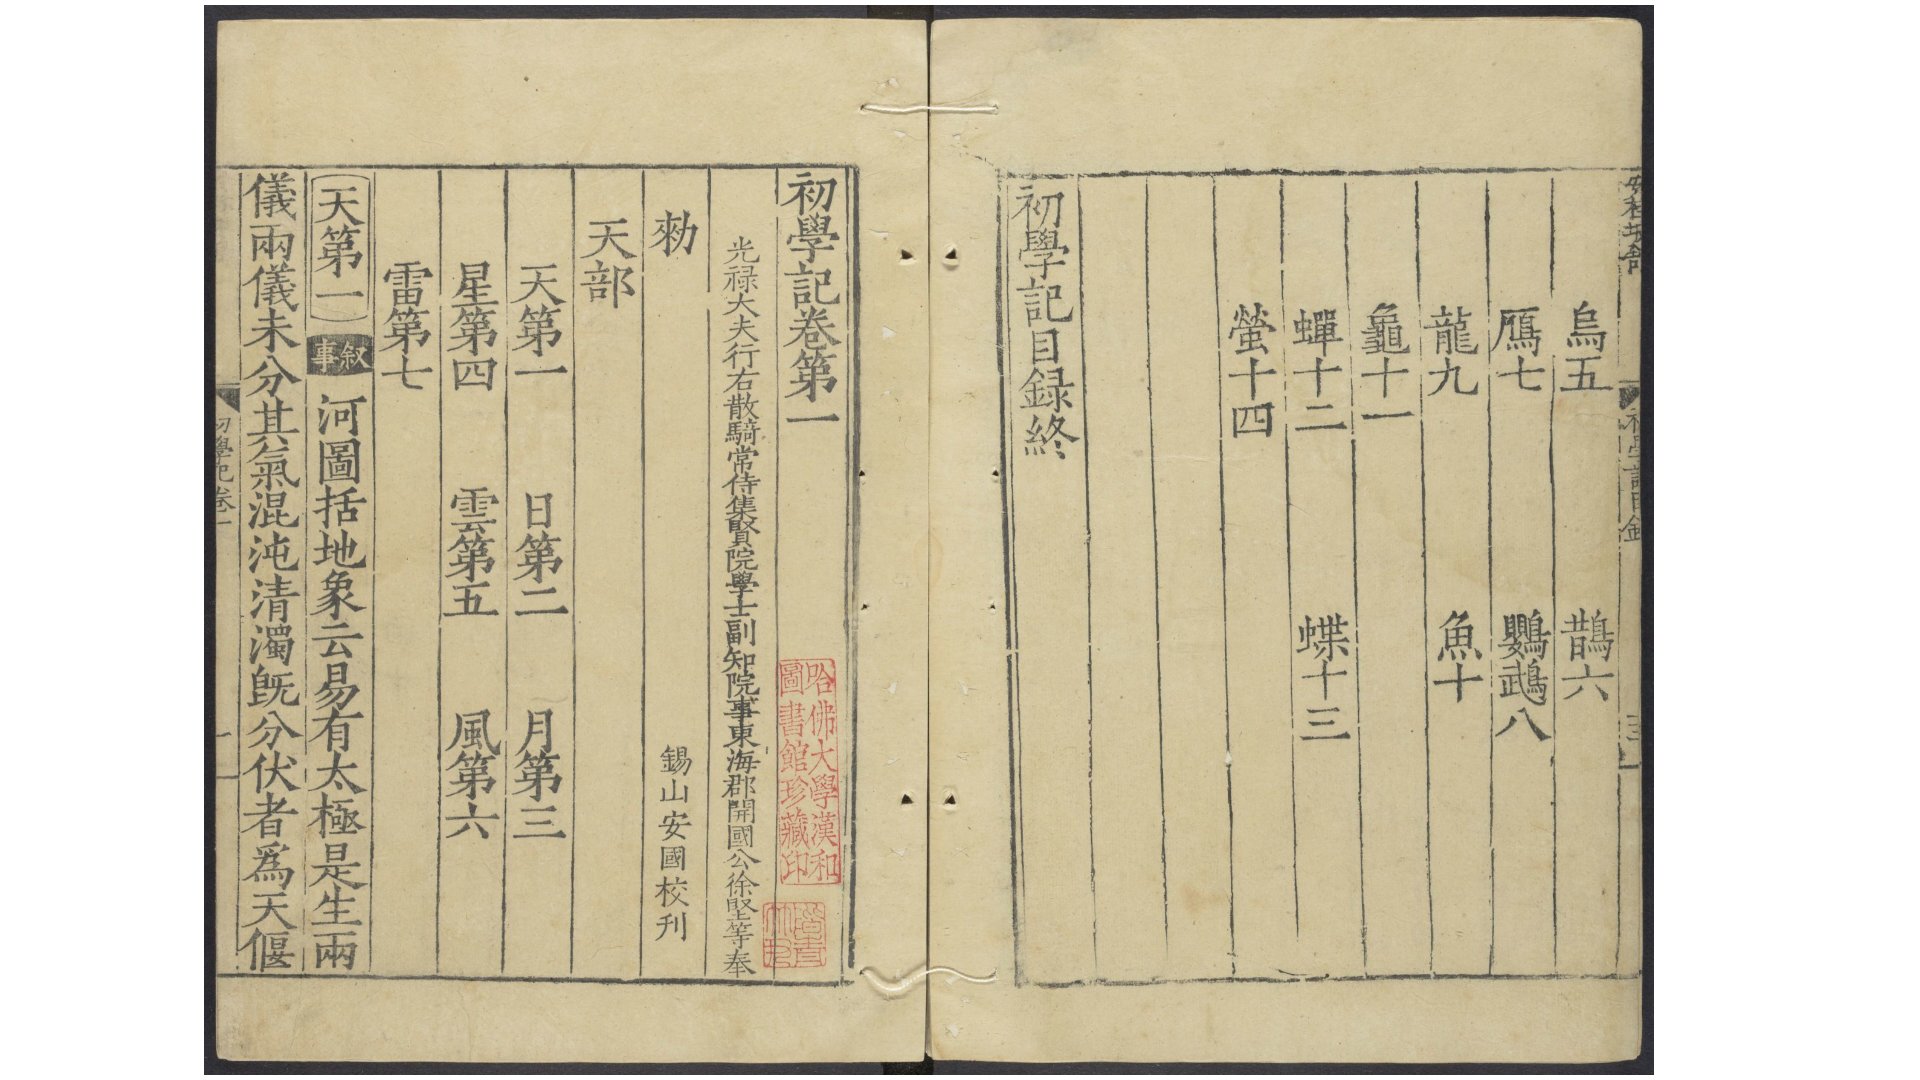 安桂坡館
初學記目錄
烏五 鵲六
鴈七 鸚鵡八
龍九 魚十
龜十一
蟬十二 蝶十三
螢十四
初學記目録終
初學記卷第一
光祿大夫行右散騎常侍集賢院學士副知院事東海郡開國公徐堅等奉
勑 錫山安國校刋
天部
天第一 日第二 月第三
星第四 雲第五 風第六
雷第七
天第一 叙事 河圖括地象云易有太極是生兩
儀兩儀未分其氣混沌清濁旣分伏者爲天偃
初學記卷一
哈佛大學漢和
圖書館珍藏印